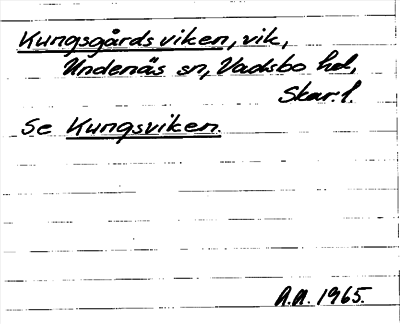 Kungsgårdsviken, vik,
Undenäs sn, Vadsbo hd,
Skar. l.
Se Kungsviken.
A.A. 1965.